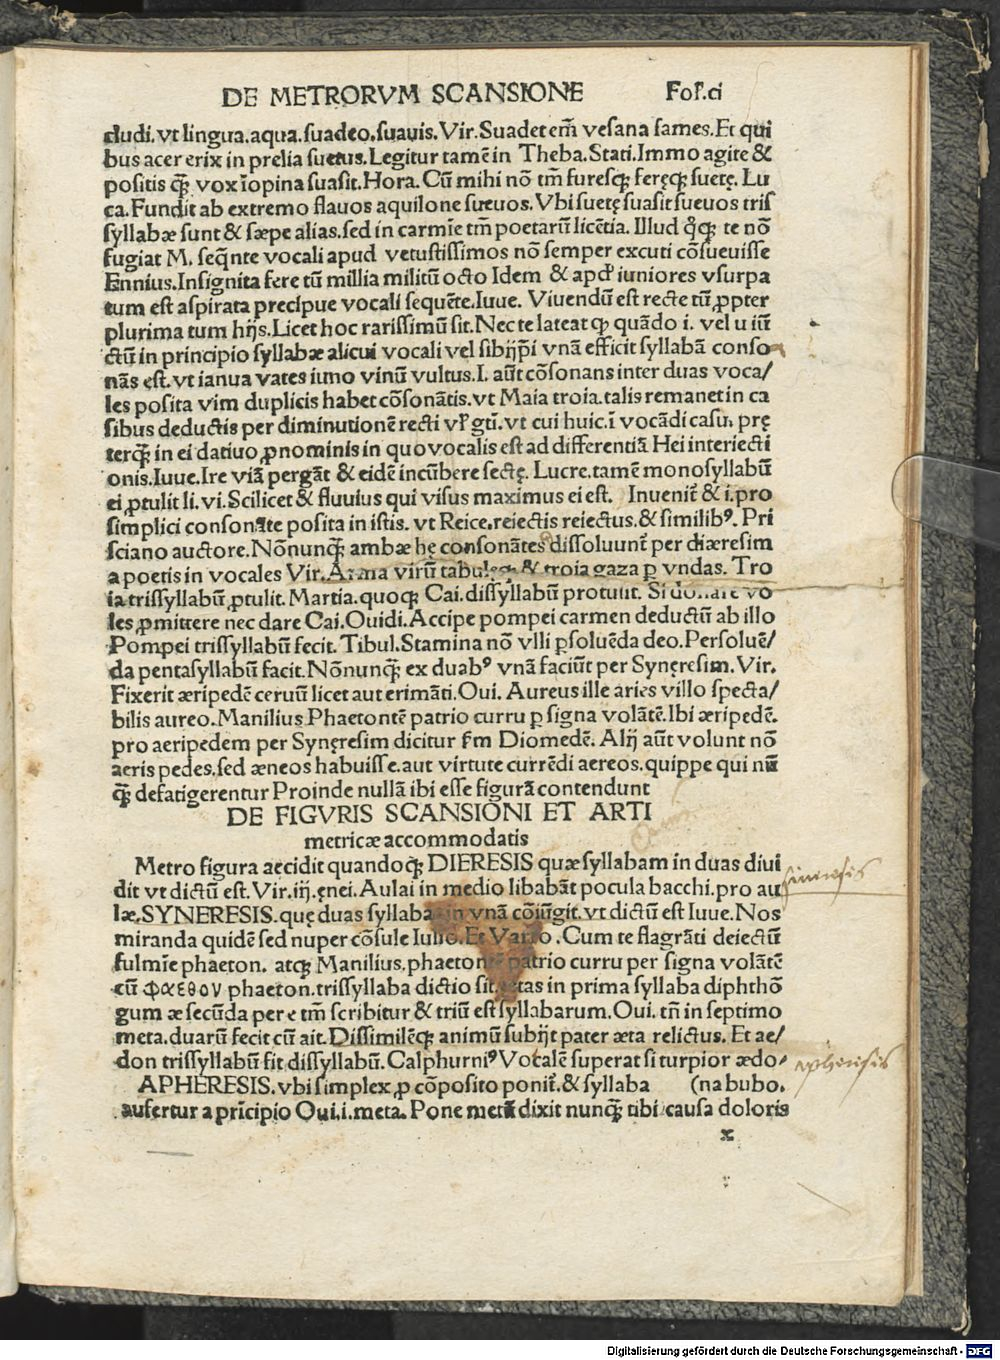 DE METRORVM SCANSIONE Fol.ci
cludi.vt lingua.aqua.suadeo.suauis.Vir.Suadet em̄ vesana fames.Et qui
bus acer erix in prelia suetus.Legitur tamē in Theba.Stati.Immo agite &
positis qꝫ vox īopina suasit.Hora.Cū mihi nō tm̄ furesqꝫ feręqꝫ suetę. Lu
ca.Fundit ab extremo flauos aquilone sueuos.Vbi suetę suasit sueuos tris
syllabæ sunt & sæpe alias.sed in carmīe tm̄ poetarū licētia. Illud qͦqꝫ te nō
fugiat M. seq̄nte vocali apud vetustissimos nō semper excuti cōsueuisse
Ennius.Insignita fere tū millia militū octo Idem & apd' iuniores vsurpa
tum est aspirata precipue vocali sequēte.Iuue. Viuendū est recte tū ꝓpter
plurima tum hijs.Licet hoc rarissimū sit.Nec te lateat qꝫ quādo i. vel u iū
ctū in principio syllabæ alicui vocali vel sibijp̄i vnā efficit syllabā conso
nās est.vt ianua vates iuno vinū vultus.I. aūt cōsonans inter duas voca/
les posita vim duplicis habet cōsonātis.vt Maia troia.talis remanet in ca
sibus deductis per diminutionē recti vl' gti.vt cui huic.ī vocādi casu. prę
terqꝫ in ei datiuo ꝓnominis in quo vocalis est ad differentiā Hei interiecti
onis.Iuue.Ire viā pergāt & eidē incūbere sectę. Lucre.tamē monosyllabū
ei ꝓtulit li.vi.Scilicet & fluuius qui visus maximus ei est. Inuenit & i.pro
simplici consonāte posita in istis. vt Reice.reiectis reiectus.& similibꝰ. Pri
sciano auctore.Nōnunqꝫ ambæ hę consonātes dissoluunt per diæresim
a poetis in vocales Vir.Arma virū tabulęqꝫ & troia gaza p vndas. Tro
ia trissyllabū ꝓtulit. Martia.quoqꝫ Cai.dissyllabū protulit. Si donare vo
les ꝓmittere nec dare Cai.Ouidi.Accipe pompei carmen deductū ab illo
Pompei trissyllabū fecit. Tibul.Stamina nō vlli ꝑsoluēda deo.Persoluē/
da pentasyllabū facit.Nōnunqꝫ ex duabꝰ vnā faciūt per Synęresim. Vir.
Fixerit æripedē ceruū licet aut erimāti.Oui. Aureus ille aries villo specta/
bilis aureo.Manilius Phaetontē patrio curru p signa volātē.Ibi æripedē.
pro aeripedem per Synęresim dicitur s̄m Diomedē. Alij aūt volunt nō
aeris pedes.sed æneos habuisse.aut virtute currēdi aereos.quippe qui nū
qꝫ defatigerentur Proinde nullā ibi esse figurā contendunt
DE FIGVRIS SCANSIONI ET ARTI
metricæ accommodatis
Metro figura accidit quandoqꝫ DIERESIS quæ syllabam in duas diui
dit vt dictū est.Vir.iij.ęnei.Aulai in medio libabāt pocula bacchi.pro au
læ.SYNERESIS.quę duas syllabas in vnā cōiūgit.vt dictū est Iuue.Nos
miranda quidē sed nuper cōsule Iulio.Et Varro.Cum te flagrāti deiectū
fulmīe phaeton. atqꝫ Manilius.phaetontē patrio curru per signa volātē
cū φαεθον phaeton.trissyllaba dictio sit. in prima syllaba diphthō
gum æ secūda per e tm̄ scribitur & triū est syllabarum.Oui. tn̄ in septimo
meta.duarū fecit cū ait.Dissimilēqꝫ animū subijt pater æta relictus. Et ae/
don trissyllabū fit dissyllabū.Calphurniꝰ Votalē superat si turpior ædo-
APHERESIS.vbi simplex ꝓ cōposito ponit.& syllaba (na bubo.
aufertur a prīcipio Oui.i.meta.Pone metū dixit nunqꝫ tibi causa doloris
x
Digitalisierung gefördert durch die Deutsche Forschungsgemeinschaft - DFG